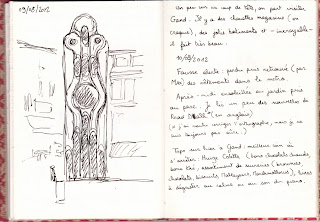 09/08/2012
Un peu sur un coup de tête, on part visiter
Gand. Il y a des chouettes magasins (on
craque), des jolis bâtiments et - incroyable -
il fait très beau.
10/08/2012
Fausse alerte : perdu puis retrouvé (par
Mor) des vêtements dans le métro.
Après-midi ensoleillée au jardin puis
au parc. Je lis un peu des nouvelles de
Roald Dahl (en anglais)
(j'ai naturellement l'orthographe, mais je ne
suis toujours pas sûre.)
Tips sur hier à Gand : meilleur coin où
s'arrêter : Huize Colette (bons chocolats chauds,
bons thés, assortiment de minuscules (brownies,
chocolats, biscuits, ), livres
à déguster au calme ou au son du piano.